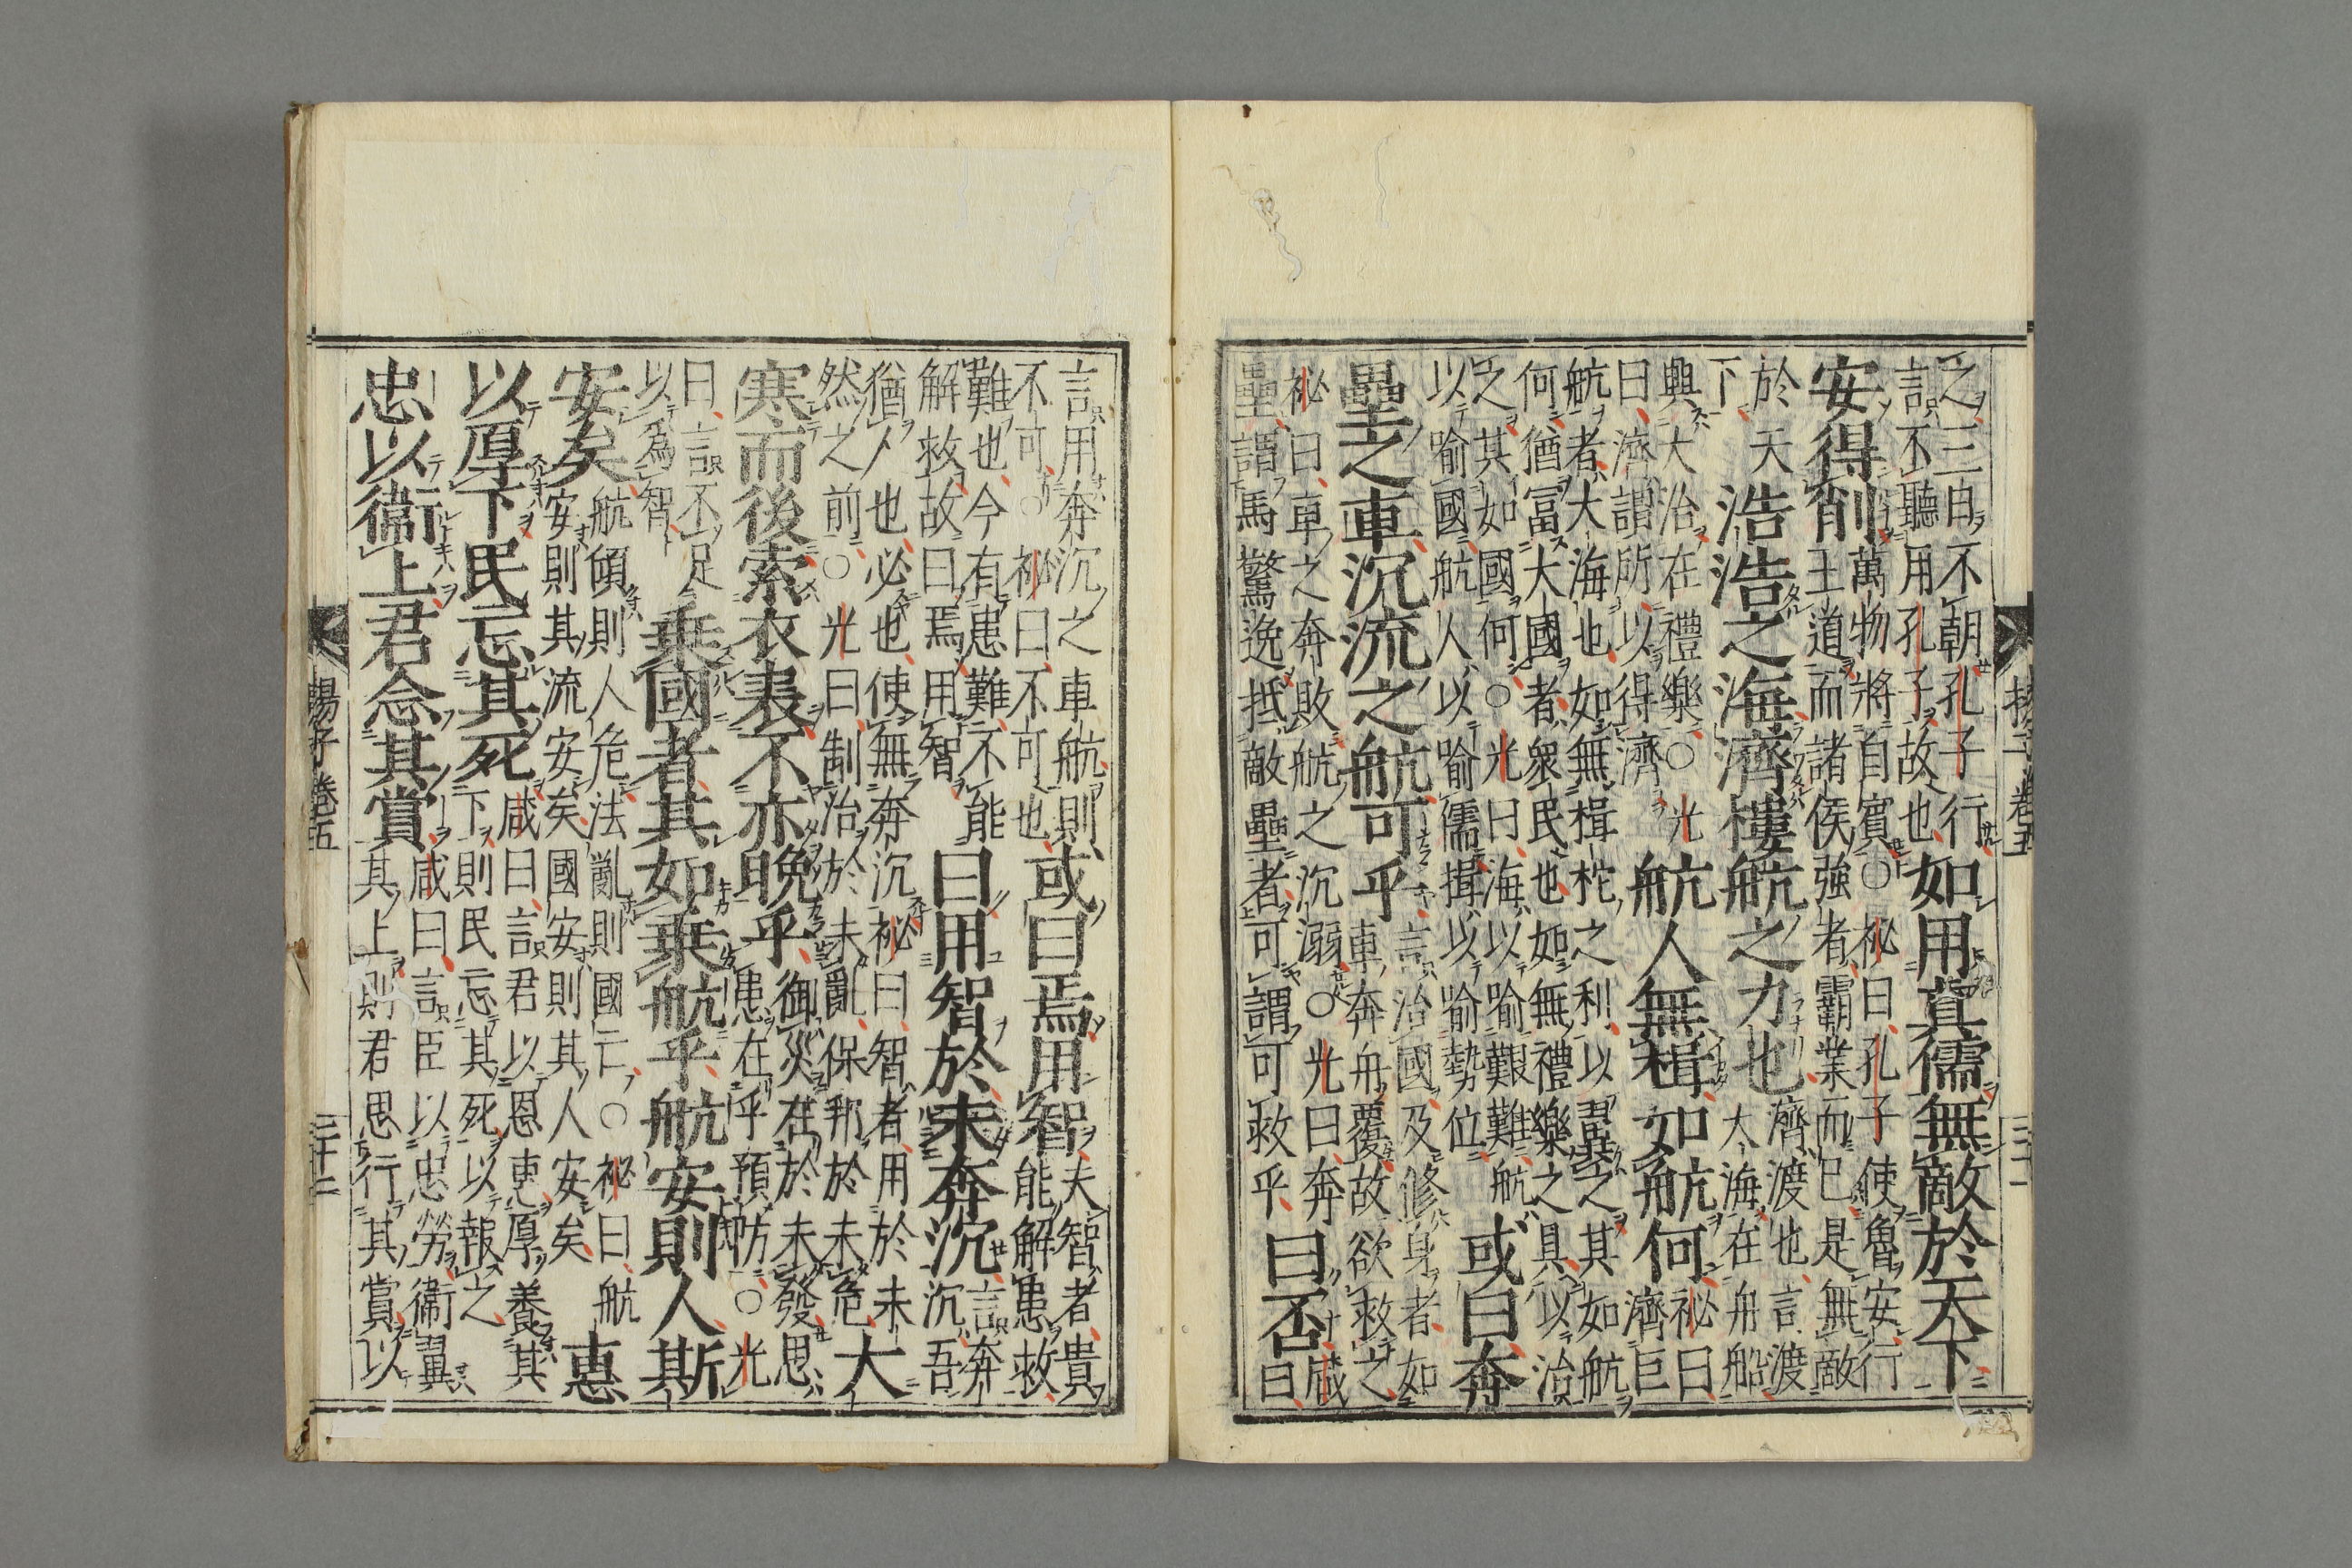 之三日不朝孔子行
言不聽用孔子故也
如用真儒無敵於天下
安得削
萬物將自賓〇祕曰孔子使魯安行
王道而諸侯強者霸業而已是無敵
於天
下
浩浩之海濟樓航之力也
濟渡也言渡
大海在舟船
興大治在禮樂〇光
曰濟謂所以得濟
航人無楫如航何
祕曰
濟巨
航者大海也如無楫柁之利以翼之其如航
何猶冨大國者衆民也如無禮樂之具以治
之其如國何〇光曰海以喻艱難航
以喻國航人以喻儒揖以喻勢位
或曰奔
壘之車沉流之航可乎
言治國及修身者如
車奔舟覆故欲救之
祕曰車之奔敗航之沉溺〇光曰奔
壘謂馬驚逸抵敵壘者可謂可救乎
曰否
咸
曰
言用奔沉之車航則
不可〇祕曰不可也
或曰焉用智
夫智者貴
能解患救
難也今有患難不能
解救故曰焉用智
曰用智於未奔沉
言奔
沉吾
猶人也必也使無奔沉祕曰智者用於未
然之前〇光曰制治於未亂保邦於未危
大
寒而後索衣裘不亦晚乎
御災在於未發思
患在乎預防〇光
曰言不足
以爲智
乗國者其如乗航乎航安則人斯
安矣
航傾則人危法亂則國亡〇祕曰航
安則其流安矣國安則其人安矣
惠
以厚下民忘其死
咸曰言君以恩恵厚養其
下則民忘其死以報之
忠以衞上君念其賞
咸曰言臣以忠勞衞翼
其上則君思行其賞以
楊子卷五
三十二